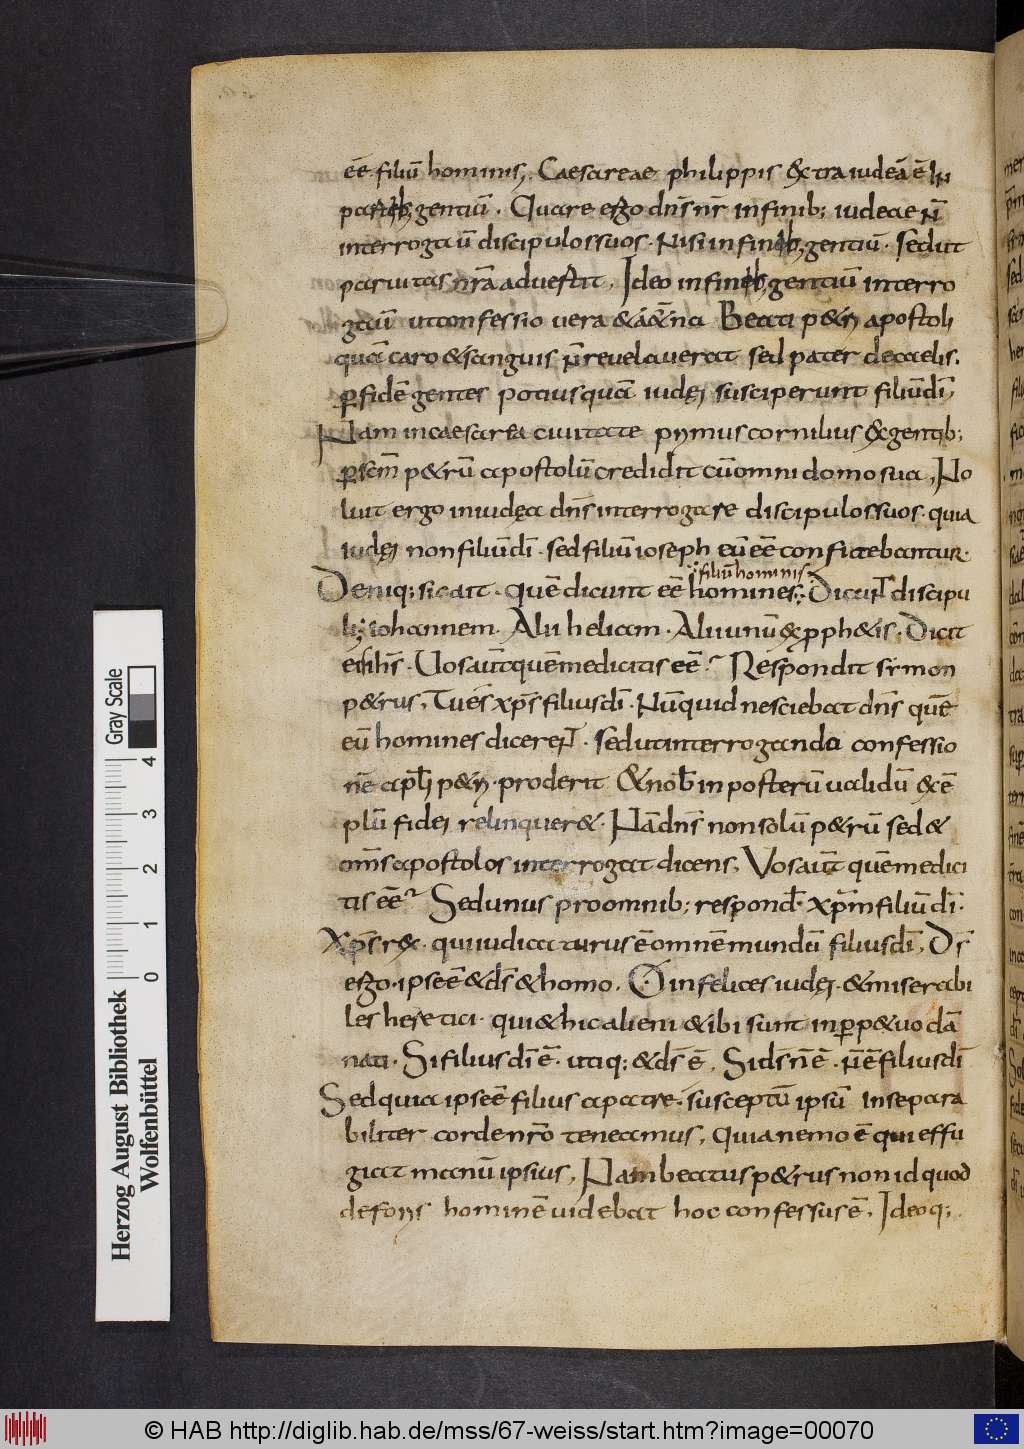 eē filiū hominis, Caesareae philippis &tra iudeā ē In
partib; gentiū. Quare ergo dn̄s nr̄ in finib; iudeae n̄
interrogauit discipulos suos. Nisi in finib; gentiū. sed ut
paruitas nr̄a aduertit. Ideo in finib; gentiū interro
gauit ut confessio vera & aeterna Beati p&ri apostoli
quā caro & sanguis n̄ revelaverat sed pater de caelis.
ꝑ fidē gentes potius quā iudęi susciperunt filiū dī,
Nam in caesarea civitate primus cornilius & gentib;
ꝑ scm̄ p&rū apostolū credidit cū omni domo sua, No
luit ergo in iudęa dn̄s interrogare discipulos suos. quia
iudęi non filiū dī. sed filiū ioseph eū eē confitebantur.
filiū hominis
Deniq; sic ait. quē dicunt eē homines; Dicunt discipu
li; iohannem. Alii heliam. Alii unū ex proph&is. Dicit
eis ih̄s. Vos aut̄ quē me dicitis eē? Respondit simon
p&rus, Tu es xp̄s filius dī. Nūquid nesciebat dn̄s quē
eū homines dicerent. sed ut interroganda confessio
nē apl̄i p&ri. proderit & nob̄ in posterū ualidū exē
plū fidei relinquer&. Nā dn̄s non solū p&rū sed &
om̄s apostolos interrogat dicens, Vos aut̄ quē me dici
tis eē? Sed unus pro omnib; respond̄. xp̄m filiū dī.
Xp̄s rex. qui iudicaturus ē omnē mundū filius dī, Ds̄
ergo. ipse ē & ds̄ & homo. O infelices iudęi. & miserabi
les heretici. qui & hic alieni & ibi sunt in ꝑp&uo dā
nati. Si filius dī ē. utiq; & ds̄ ē. Si ds̄ n̄ ē. n̄ ē filius dī
Sed quia ipse ē filius a patre. susceptū ipsū insepara
biliter corde nr̄o teneamus, quia nemo ē qui effu
giat manū ipsius, Nam beatus p&rus non id quod
deforis hominē uidebat hoc confessus ē, Ideoq;
Gray Scale
0 1 2 3 4
Herzog August Bibliothek
Wolfenbüttel
© HAB http://diglib.hab.de/mss/67-weiss/start.htm?image=00070